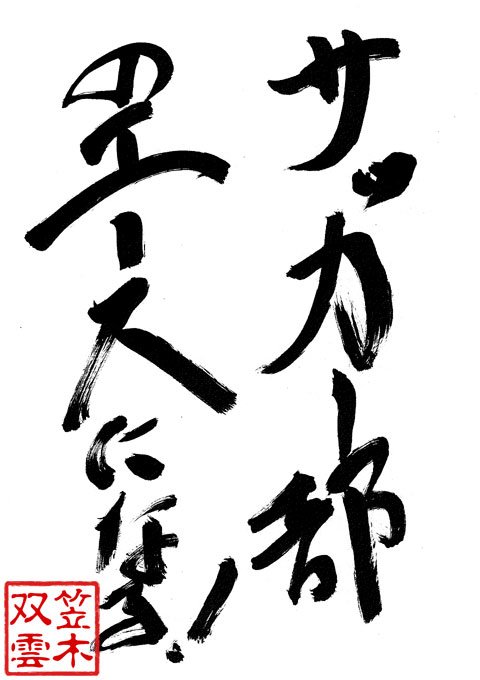 サッカー部
のエースになる!
笠木
双雲